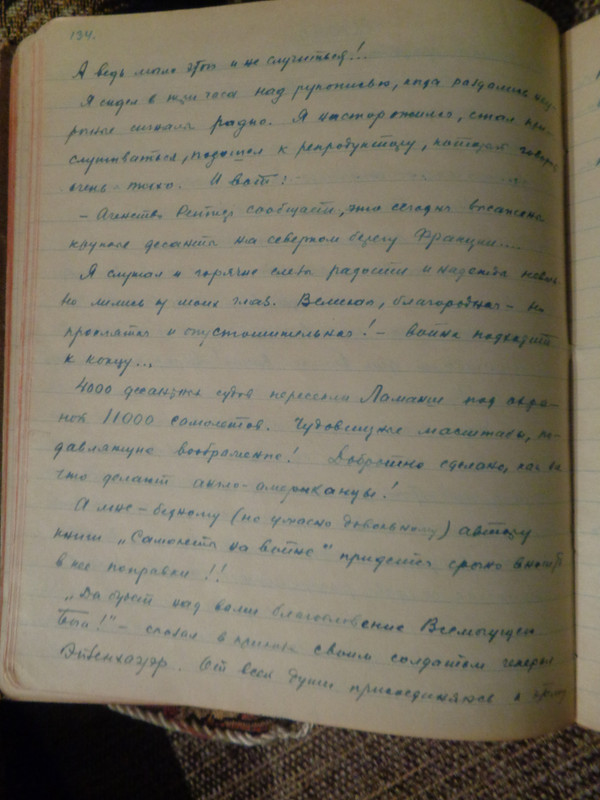 194.
А ведь могло этого и не случиться!...
Я сидел в три часа над рукописью, когда раздались
сигналы радио. Я насторожился, стал при-
слушиваться, подошел к репродуктору, который говорил
очень тихо. И вот:
– Агентство Рейтер сообщает, что сегодня высажены
крупные десанты на северном берегу Франции....
Я слушал и горячие слезы радости и надежды неволь-
но лились из моих глаз. Великая, благородная – но
проклятая и опустошительная! – война подходит
к концу...
4000 десантных судов пересекли Ламанш под охра-
ной 11000 самолетов. Чудовищные масштабы, по-
давляющие воображение! Добротно сделано, как все
что делают англо-американцы!
А мне – бедному (но ужасно довольному) автору
книги „Самолеты на войне" придется срочно вносить
в нее поправки!!
„Да будет над вами благословение Всемогущего
Бога!" – сказал в приказе своим солдатам генерал
Эйзенхауэр. От всей души присоединяюсь к этому